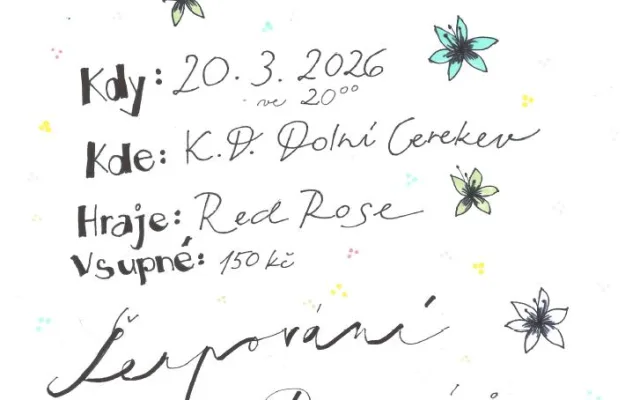 Kdy: 20. 3. 2026
ve 20⁰⁰
Kde: K.D. Dolní Cerekev
Hraje: Red Rose
Vsupné: 150 kč
Šerpování